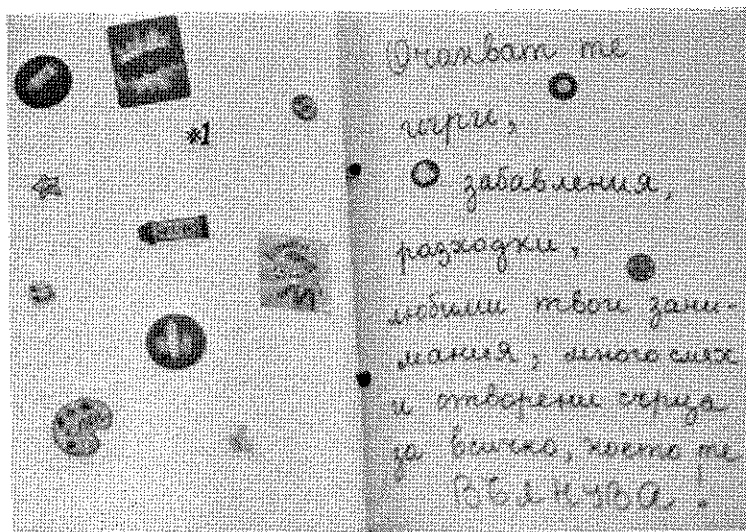 *1
Очакват те
игри,
забавления,
разходки,
любими твои зани-
мания, много смях
и отворени сърца
за всичко, което те
ВЪЛНУВА.